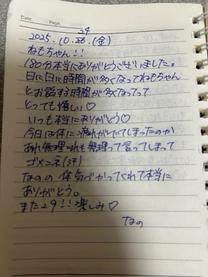 Date ・ Page
24
2025.10.26.(金)
ねもちゃん!!
180分本当にありがとうございました。
日に日に時間が多くなってねもちゃん
とお話する時間が多くなってって
とっても嬉しい♡
いつも本当にありがとう♡
今日は体に疲れがでてしまったのか
あれ無理これも無理って言ってしまって
ゴメンネ(汗)
なのの 体気づかってくれて本当に
ありがとう。
また29!!楽しみ♡
なの